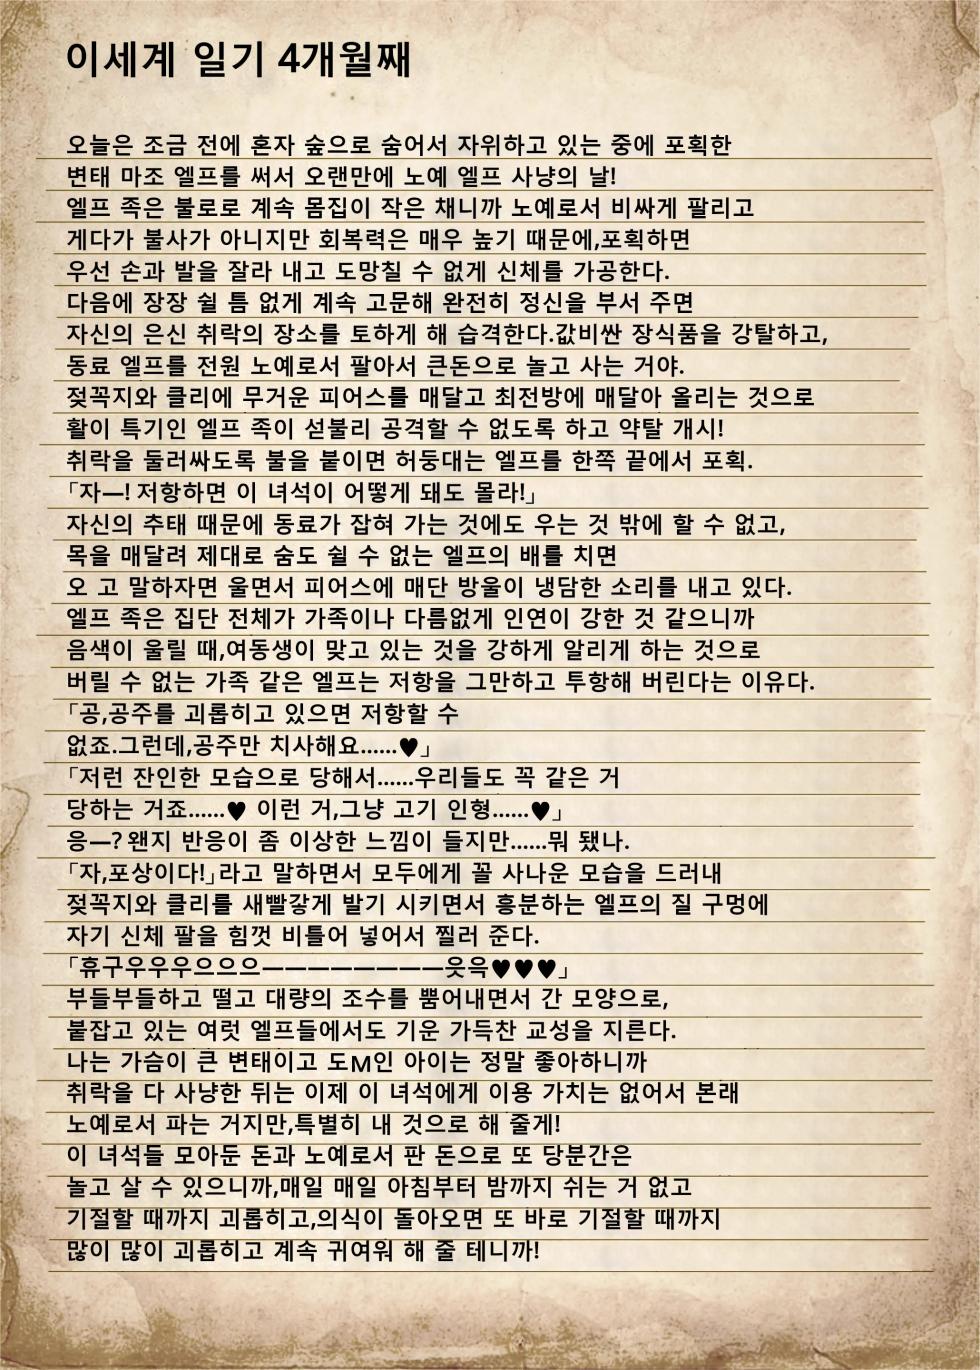 이세계 일기 4개월째
오늘은 조금 전에 혼자 숲으로 숨어서 자위하고 있는 중에 포획한
변태 마조 엘프를 써서 오랜만에 노예 엘프 사냥의 날!
엘프 족은 불로로 계속 몸집이 작은 채니까 노예로서 비싸게 팔리고
게다가 불사가 아니지만 회복력은 매우 높기 때문에,포획하면
우선 손과 발을 잘라 내고 도망칠 수 없게 신체를 가공한다.
다음에 장장 쉴 틈 없게 계속 고문해 완전히 정신을 부서 주면
자신의 은신 취락의 장소를 토하게 해 습격한다.값비싼 장식품을 강탈하고,
동료 엘프를 전원 노예로서 팔아서 큰돈으로 놀고 사는 거야.
젖꼭지와 클리에 무거운 피어스를 매달고 최전방에 매달아 올리는 것으로
활이 특기인 엘프 족이 섣불리 공격할 수 없도록 하고 약탈 개시!
취락을 둘러싸도록 불을 붙이면 허둥대는 엘프를 한쪽 끝에서 포획.
「자—! 저항하면 이 녀석이 어떻게 돼도 몰라!」
자신의 추태 때문에 동료가 잡혀 가는 것에도 우는 것 밖에 할 수 없고,
목을 매달려 제대로 숨도 쉴 수 없는 엘프의 배를 치면
오 고 말하자면 울면서 피어스에 매단 방울이 냉담한 소리를 내고 있다.
엘프 족은 집단 전체가 가족이나 다름없게 인연이 강한 것 같으니까
음색이 울릴 때,여동생이 맞고 있는 것을 강하게 알리게 하는 것으로
버릴 수 없는 가족 같은 엘프는 저항을 그만하고 투항해 버린다는 이유다.
「공,공주를 괴롭히고 있으면 저항할 수
없죠.그런데,공주만 치사해요……♥」
「저런 잔인한 모습으로 당해서……우리들도 꼭 같은 거
당하는 거죠……♥ 이런 거,그냥 고기 인형……♥」
응—? 왠지 반응이 좀 이상한 느낌이 들지만……뭐 됐나.
「자,포상이다!」라고 말하면서 모두에게 꼴 사나운 모습을 드러내
젖꼭지와 클리를 새빨갛게 발기 시키면서 흥분하는 엘프의 질 구멍에
자기 신체 팔을 힘껏 비틀어 넣어서 찔러 준다.
「휴구우우우으으으————————읏윽♥♥♥」
부들부들하고 떨고 대량의 조수를 뿜어내면서 간 모양으로,
붙잡고 있는 여럿 엘프들에서도 기운 가득찬 교성을 지른다.
나는 가슴이 큰 변태이고 도M인 아이는 정말 좋아하니까
취락을 다 사냥한 뒤는 이제 이 녀석에게 이용 가치는 없어서 본래
노예로서 파는 거지만,특별히 내 것으로 해 줄게!
이 녀석들 모아둔 돈과 노예로서 판 돈으로 또 당분간은
놀고 살 수 있으니까,매일 매일 아침부터 밤까지 쉬는 거 없고
기절할 때까지 괴롭히고,의식이 돌아오면 또 바로 기절할 때까지
많이 많이 괴롭히고 계속 귀여워 해 줄 테니까!